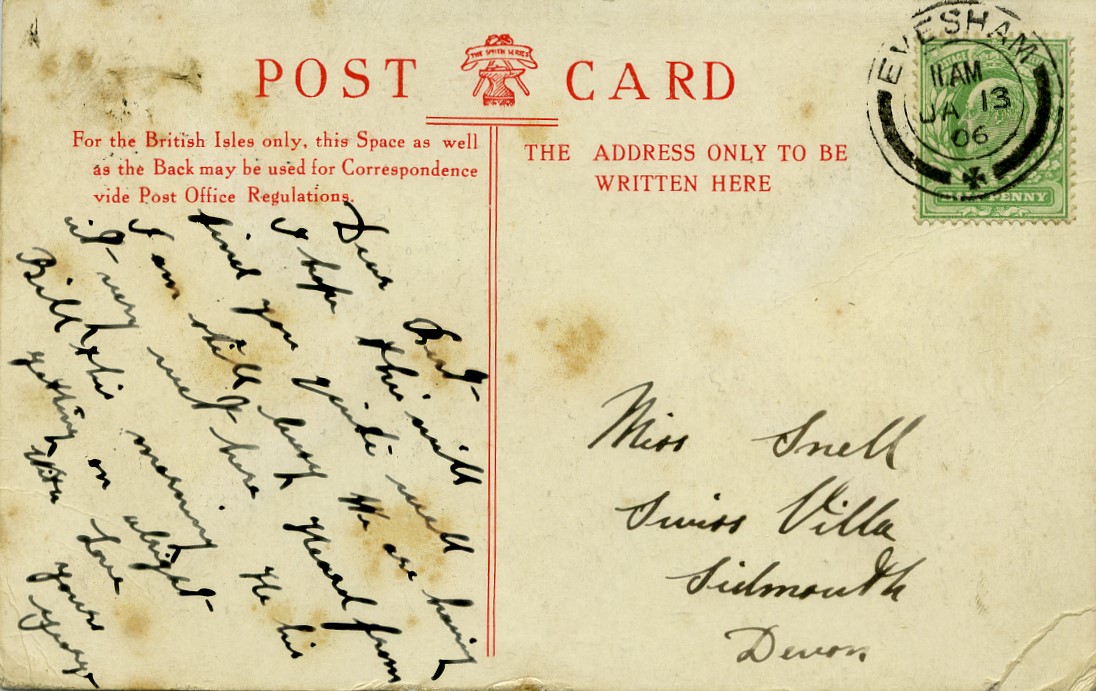 POST CARD
THE SMITH SERIES
For the British Isles only, this Space as well
as the Back may be used for Correspondence
vide Post Office Regulations.
THE ADDRESS ONLY TO BE
WRITTEN HERE
EVESHAM
11 AM
JA 13
06
PENNY
Dear Bert
I hope this will
find you quite well
I am still busy We are having
it very wet here Heard from
Bill this morning He his
getting on alright
With Love
yours
George
Miss Snell
Swiss Villa
Sidmouth
Devon